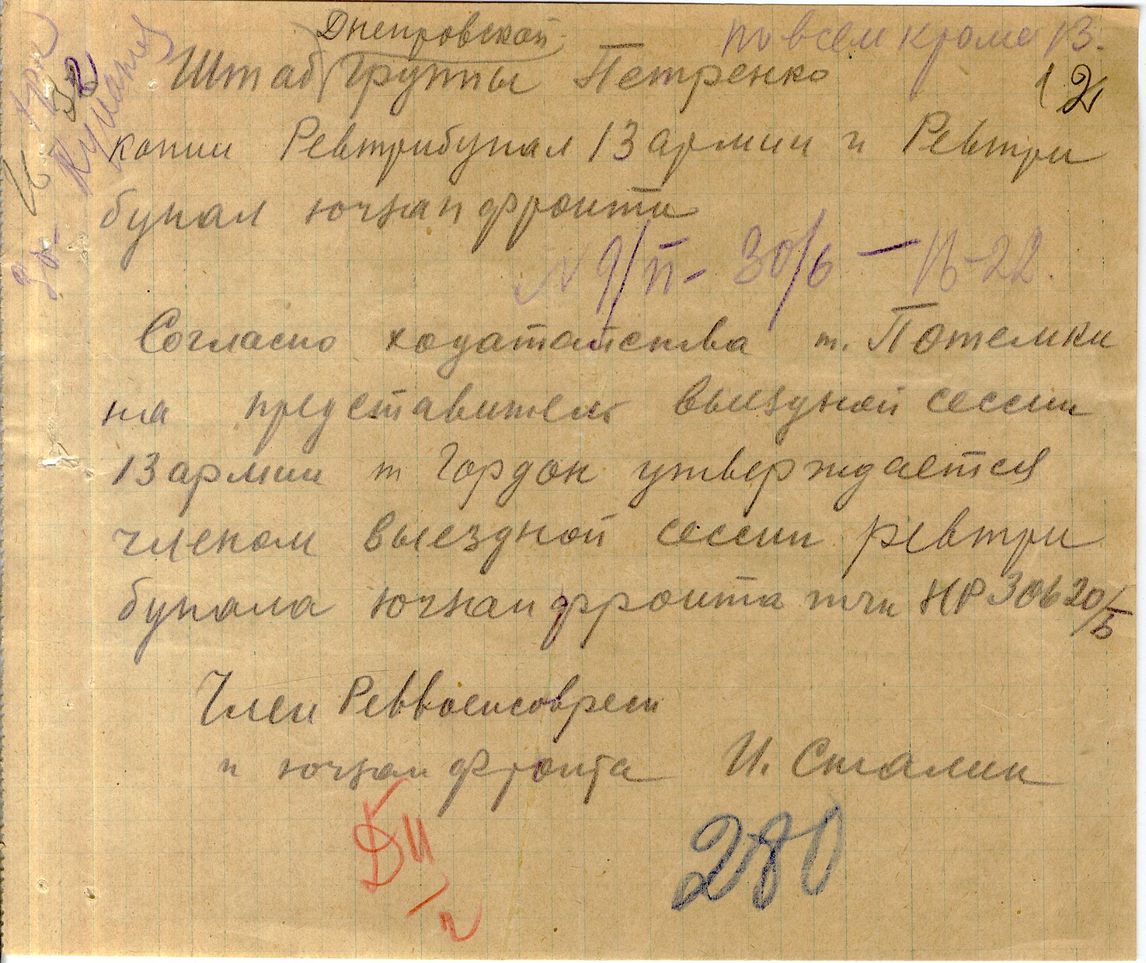 Днепровской
по всем кроме 13.
Штаб Группы Петренко
12
32
копии Ревтрибунал 13 армии и Ревтри
бунал югзап фронта
N 9/П - 30/6 –
22.
Согласно ходатайства т. Потемки
на представитель выездной сессии
13 армии т Гордон утверждается
членом выездной сессии ревтри
бунала югзап фронта тчк НР 30б 20/Б
Член Реввоенсоврем
п югзап фронта И. Сталин
280